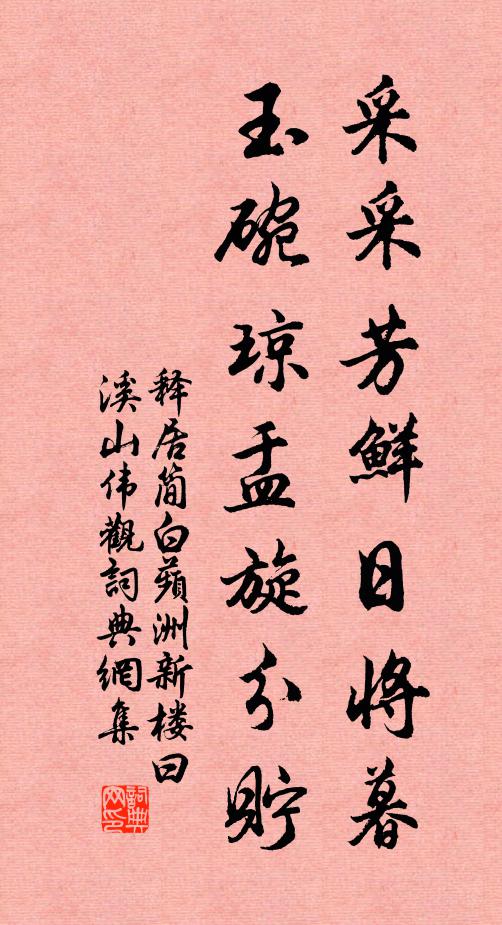 采采芳鮮日將暮
玉碗琼盂旋分貯
释居简白蘋洲新楼曰
溪山伟觀詞典網集
詞典网印